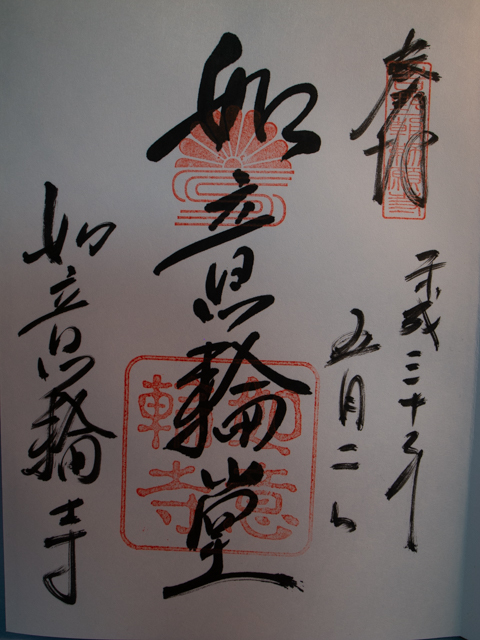 奉拝
平成三十年
五月二日
如意輪堂
如意輪寺
如意輪寺